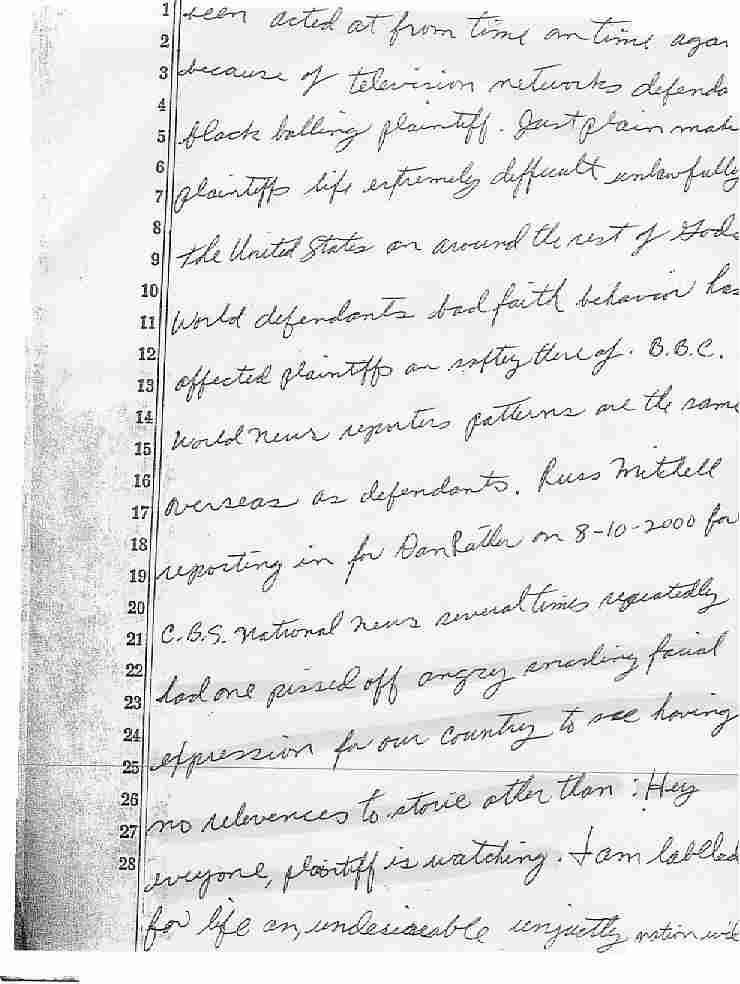 1 been acted at from time an time agai
2
3 because of television networks defenda
4
5 black balling plaintiff. Just plain make
6
7 plaintiffs life extremely difficult unlawfully
8
9 the United States an around the rest of Gods
10
11 world defendants bad faith behavior has
12
13 affected plaintiffs an saftey there of. B.B.C.
14
15 World News reporters patterns are the same
16
17 overseas as defendants. Russ Mitchell
18
19 reporting in for Dan Rather on 8-10-2000 for
20
21 C.B.S. National News several times repeatedly
22
23 had one pissed off angry snarling facial
24
25 expression for our country to see having
26
27 no relevences to storie other than: Hey
28
everyone, plaintiff is watching. I am labelled
for life an undesireable unjustly nation wide